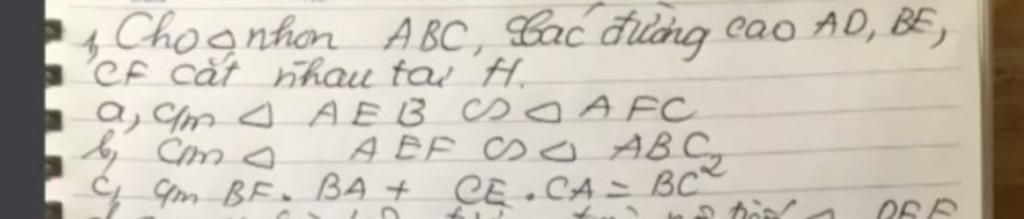 1, Cho △ nhọn ABC, các đường cao AD, BE,
CF cắt nhau tại H.
a, cm △ AEB ∽ △ AFC
b, cm △ AEF ∽ △ ABC
c, cm BF. BA + CE.CA = BC²